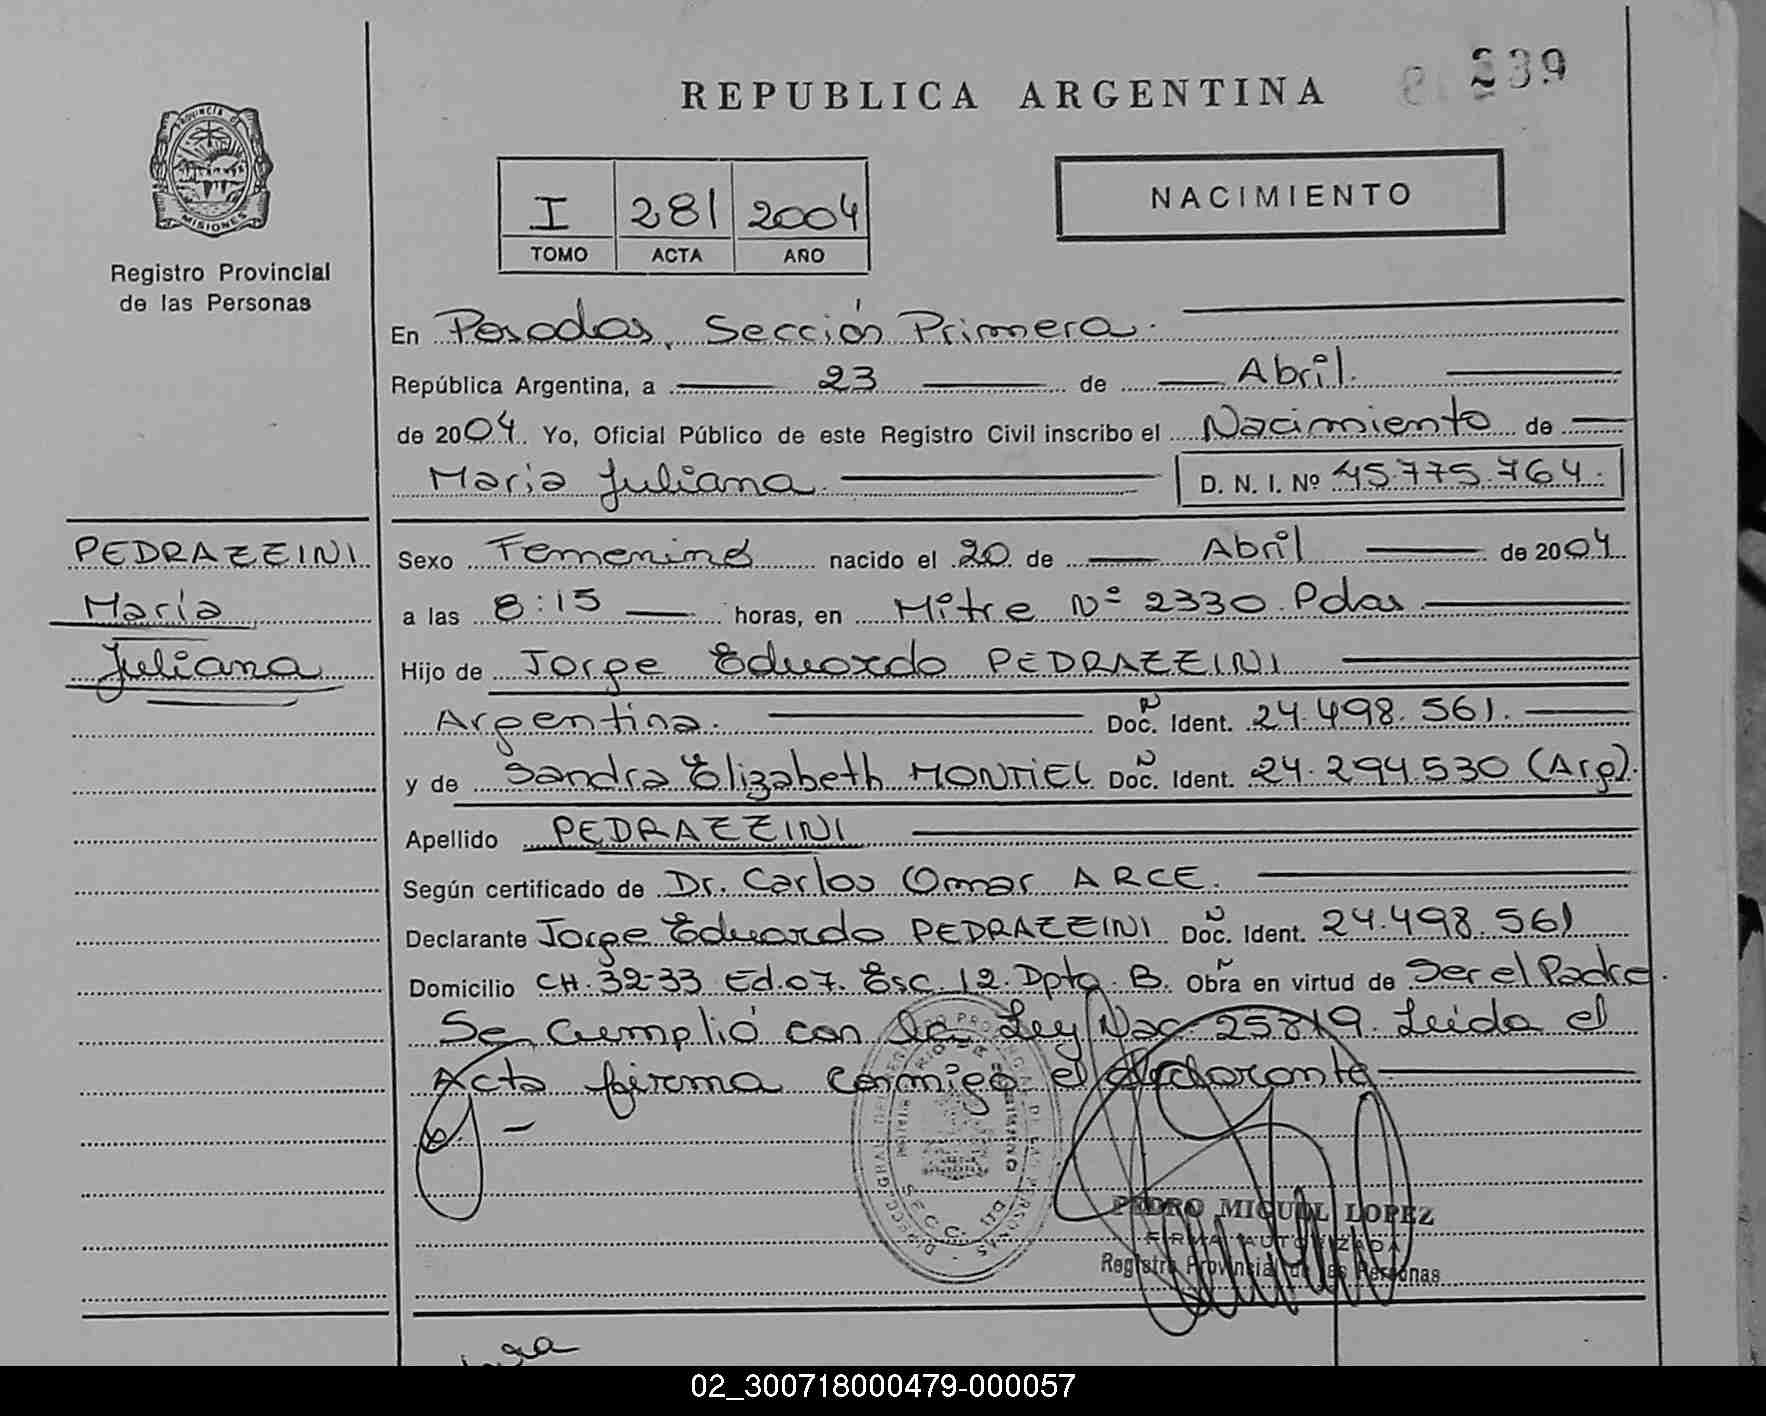 239
REPUBLICA ARGENTINA
PROVINCIA DE
MISIONES
Registro Provincial
de las Personas
I 281 2004
TOMO ACTA AÑO
NACIMIENTO
En Posadas, Sección Primera.
República Argentina, a 23 de Abril.
de 2004. Yo, Oficial Público de este Registro Civil inscribo el Nacimiento de
María Juliana D. N. I. Nº 45.775.764.
PEDRAZZINI
María
Juliana
Sexo Femenino nacido el 20 de Abril de 2004
a las 8:15 horas, en Mitre Nº 2330 Pdas
Hijo de Jorge Eduardo PEDRAZZINI
Argentina. Doc. Ident. 24.498.561.
y de Sandra Elizabeth MONTIEL Doc. Ident. 24.294.530 (Arg).
Apellido PEDRAZZINI
Según certificado de Dr. Carlos Omar ARCE.
Declarante Jorge Eduardo PEDRAZZINI Doc. Ident. 24.498.561
Domicilio CH. 32-33 Ed.07. Esc. 12. Dpto. B. Obra en virtud de Ser el Padre.
Se Cumplió con la Ley Nac. 25819. Leida el
Acta firma conmigo el declarante
PEDRO MIGUEL LOPEZ
FIRMA AUTORIZADA
Registro Provincial de las Personas
02_300718000479-000057